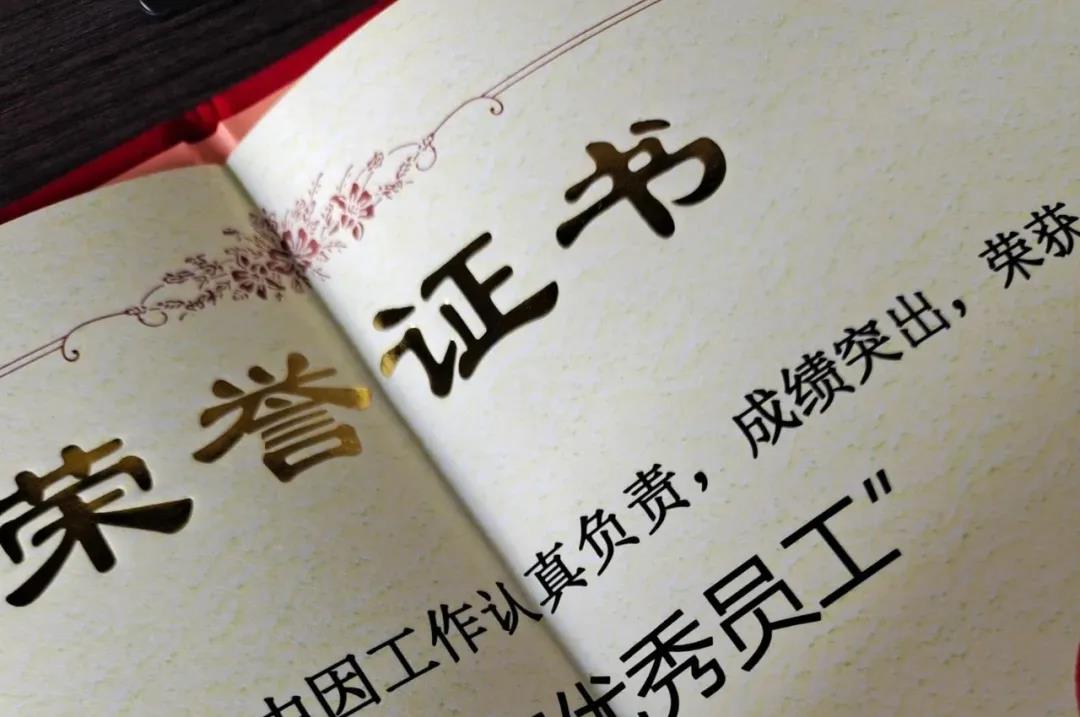 荣誉证书
中因工作认真负责，成绩突出，荣获
优秀员工"